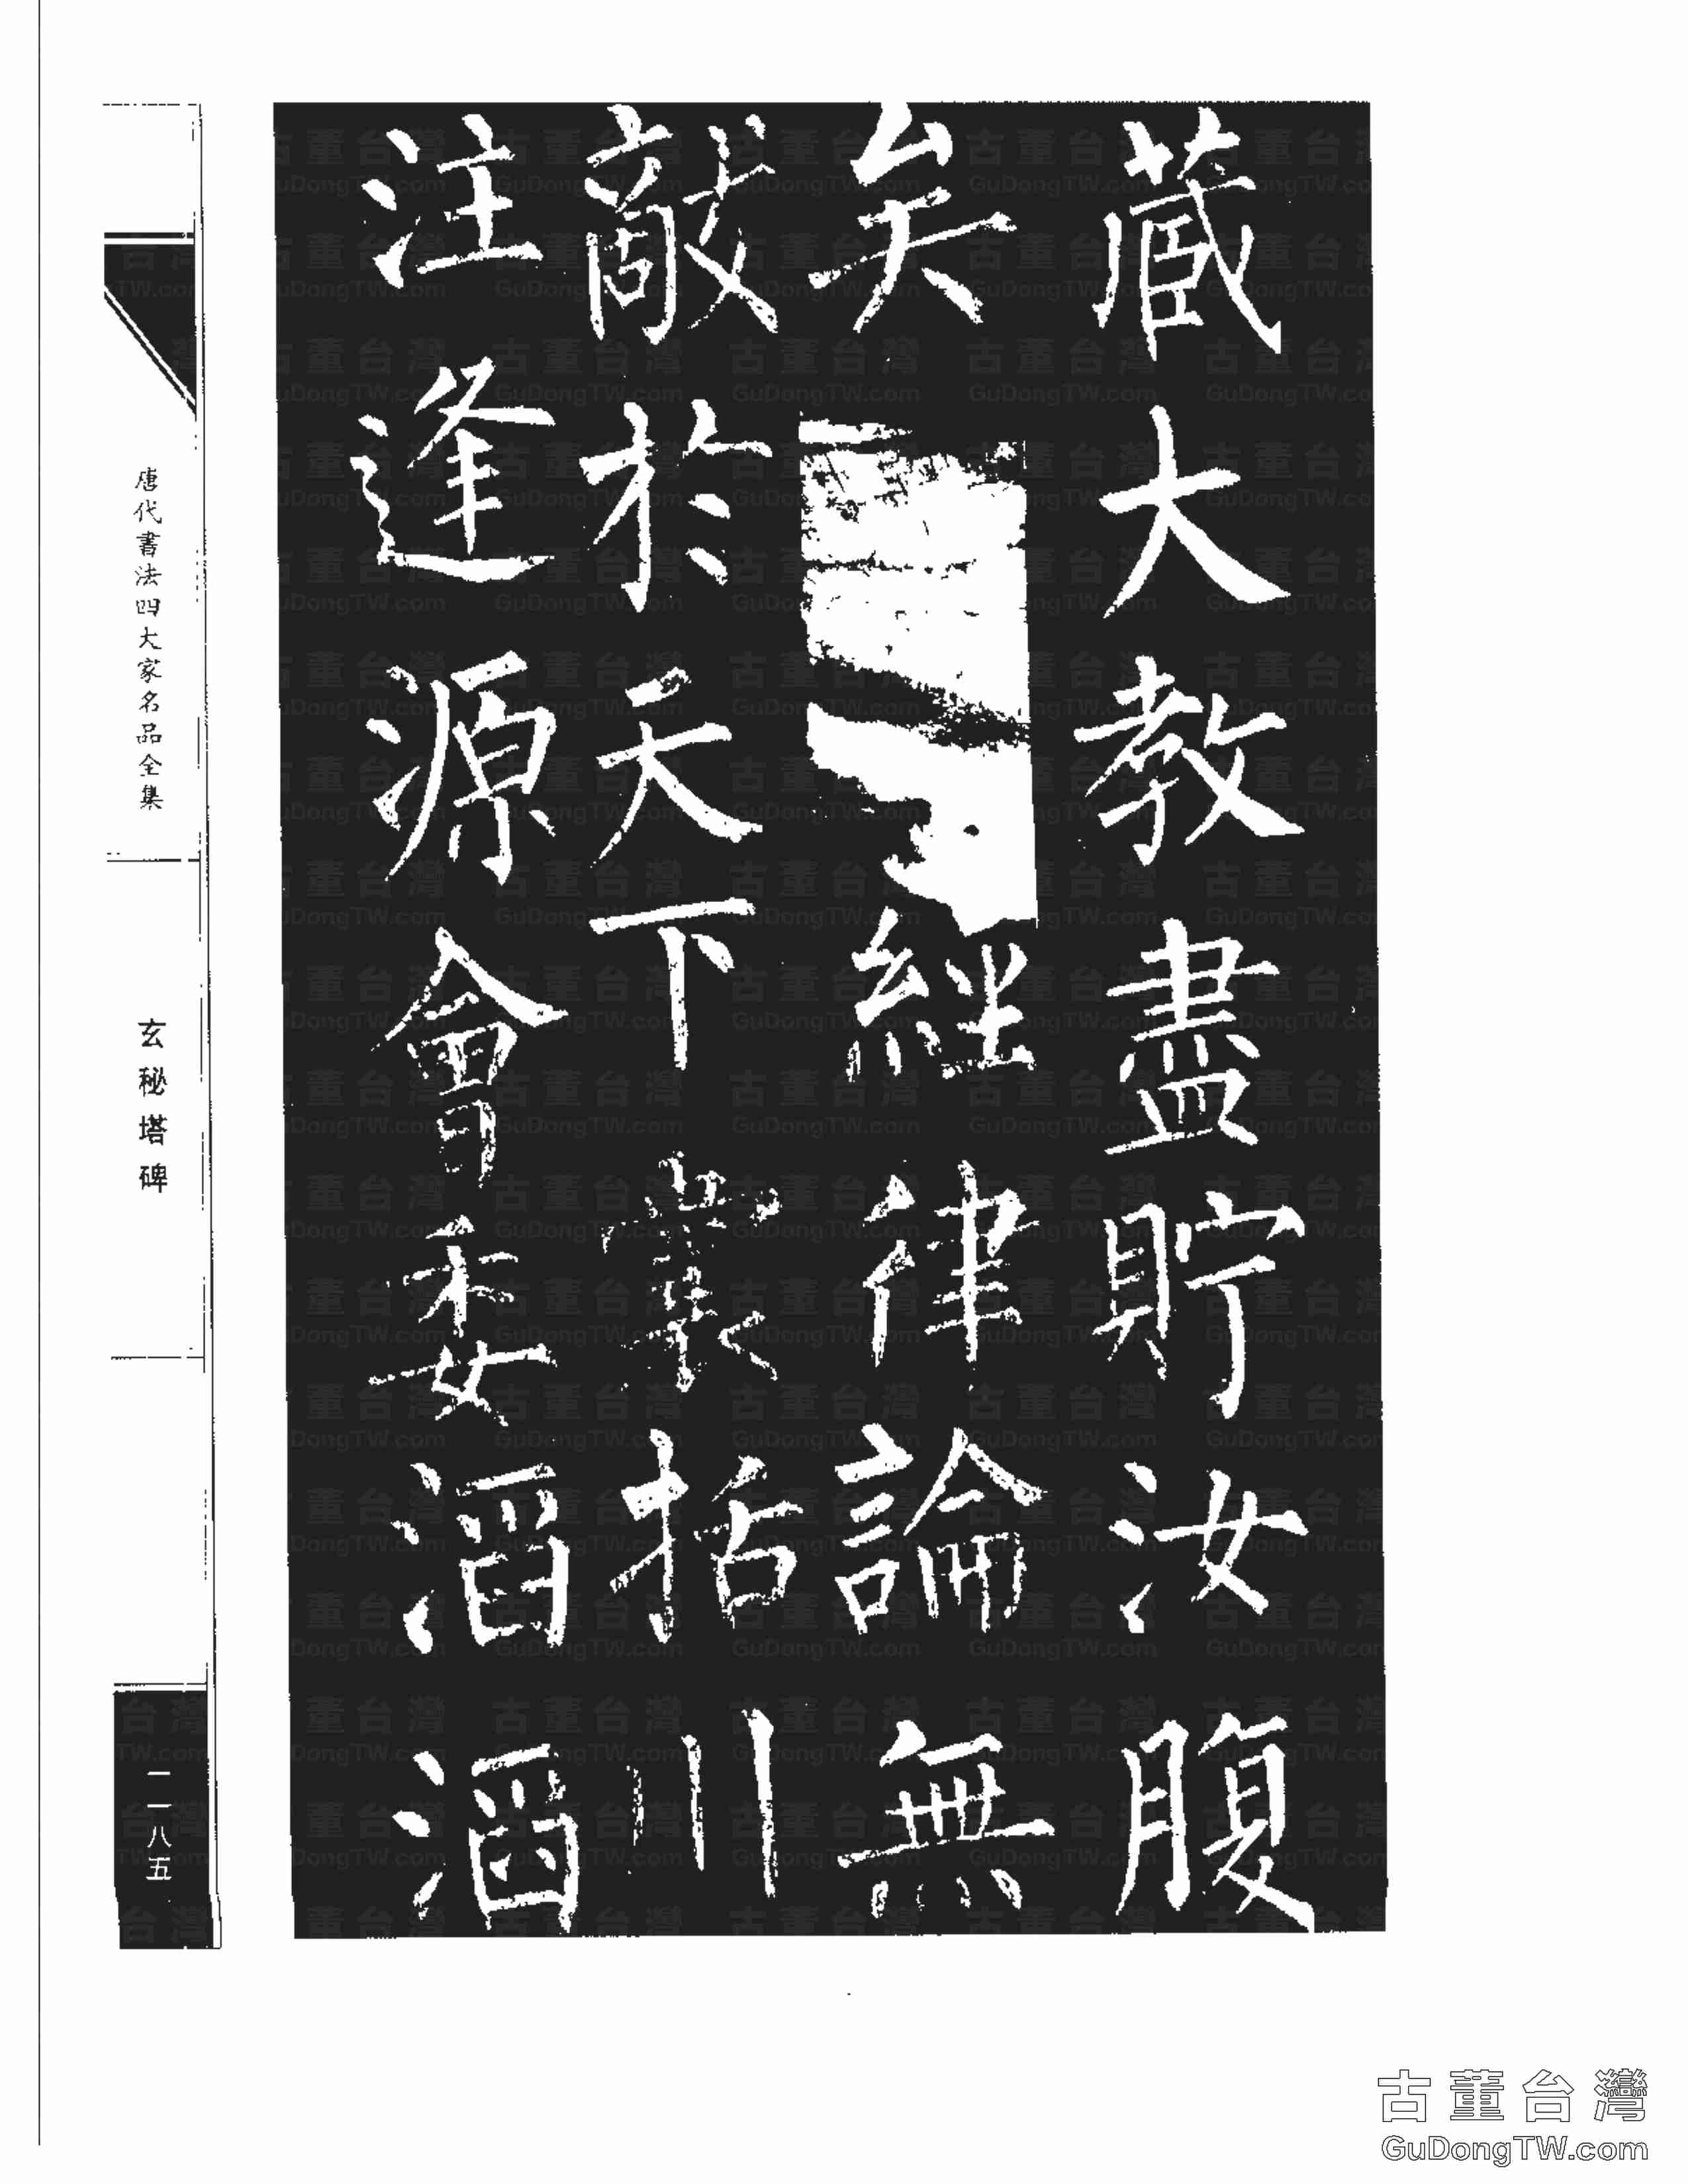 藏大教盡貯汝腹
矣經律論無
敵於天下囊括川
注逢源會委滔
滔
唐代書法四大家名品全集
玄秘塔碑
二一八五
古董台灣
GuDongTW.com